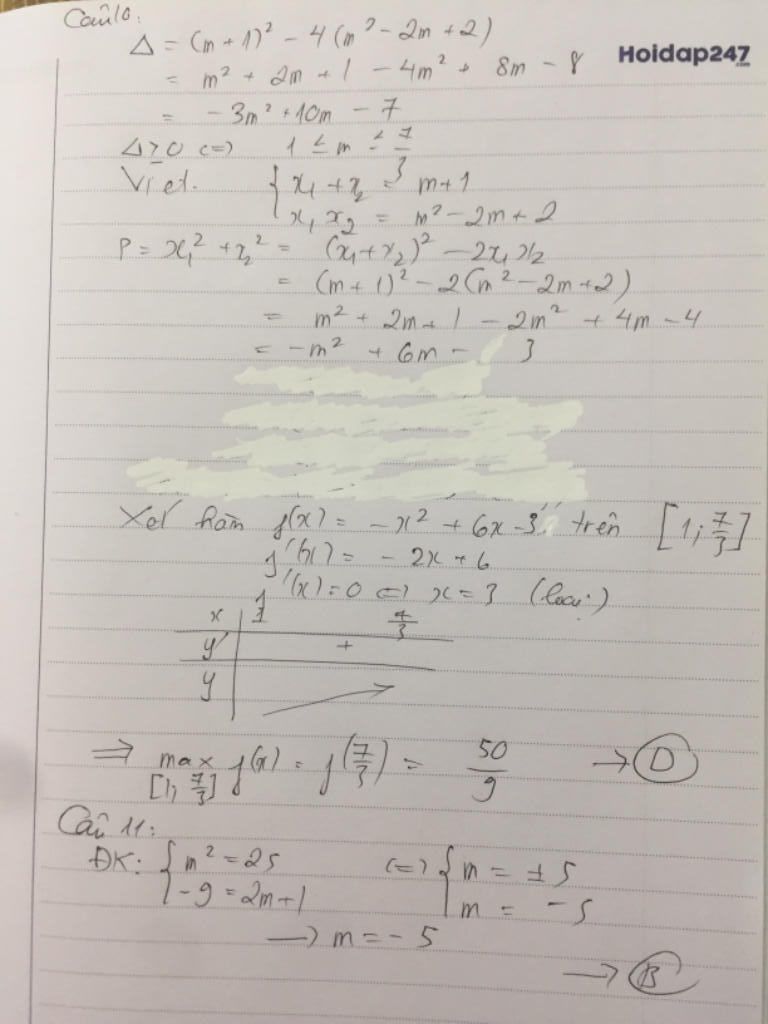 Câu 10:
Δ = (m + 1)² - 4(m² - 2m + 2)
Hoidap247.com
= m² + 2m + 1 - 4m² + 8m - 8
= -3m² + 10m - 7
Δ ≥ 0 <=> 1 ≤ m ≤ 7/3
Viet. { x₁ + x₂ = m+1
x₁ x₂ = m² - 2m + 2
P = x₁² + x₂² = (x₁ + x₂)² - 2x₁x₂
= (m + 1)² - 2(m² - 2m + 2)
= m² + 2m + 1 - 2m² + 4m - 4
= -m² + 6m - 3
Xét hàm f(x) = -x² + 6x - 3 trên [1; 7/3]
f'(x) = -2x + 6
f'(x) = 0 <=> x = 3 (loại)
x | 1 7/3
y' | +
y |
=> max f(x) = f(7/3) = 50/9 → D
[1; 7/3]
Câu 11:
ĐK: { m² = 25 <=> { m = ±5
-9 = 2m+1 m = -5
→ m = -5
→ B